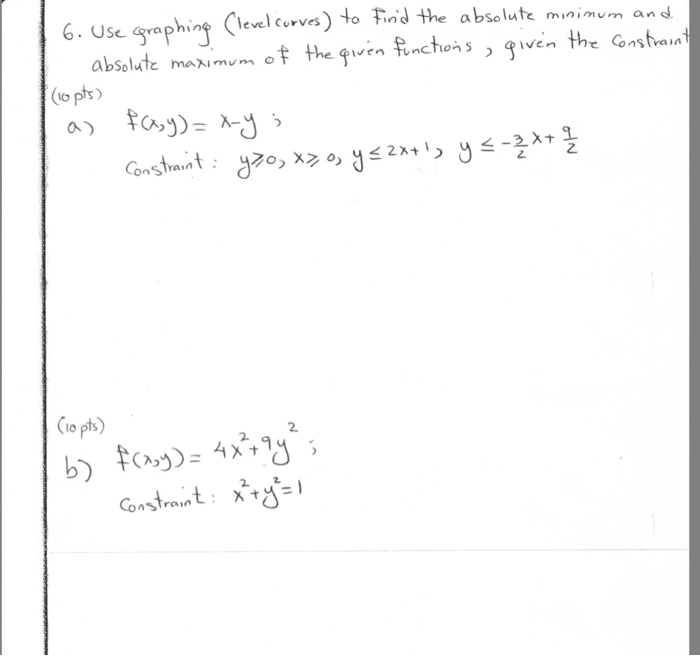 6. Use graphing (level curves) to find the absolute minimum and
absolute maximum of the given functions, given the Constraint
(10 pts)
a) f(x,y) = x-y ;
Constraint: y≥0, x≥0, y≤2x+1, y ≤ -3/2 x + 9/2
(10 pts)
b) f(x,y) = 4x²+9y² ;
Constraint: x²+y²=1